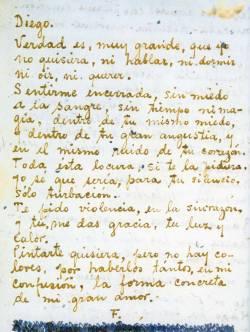 Diego.
Verdad es, muy grande, que yo
no quisiera, ni hablar, ni dormir
ni oir, ni querer.
Sentirme encerrada, sin miedo
a la sangre, sin tiempo ni ma-
gia, dentro de tu mismo miedo,
y dentro de tu gran angustia, y
en el mismo ruido de tu corazon.
Toda esta locura, si te la pidiera,
yo sé que sería, para tu silencio,
sólo turbacion.
Te pido violencia, en la sinrazon,
y tú, me das gracia, tu luz y
calor.
Pintarte quisiera, pero no hay co-
lores, por haberlos tantos, en mi
confusión, la forma concreta
de mi gran amor.
F.